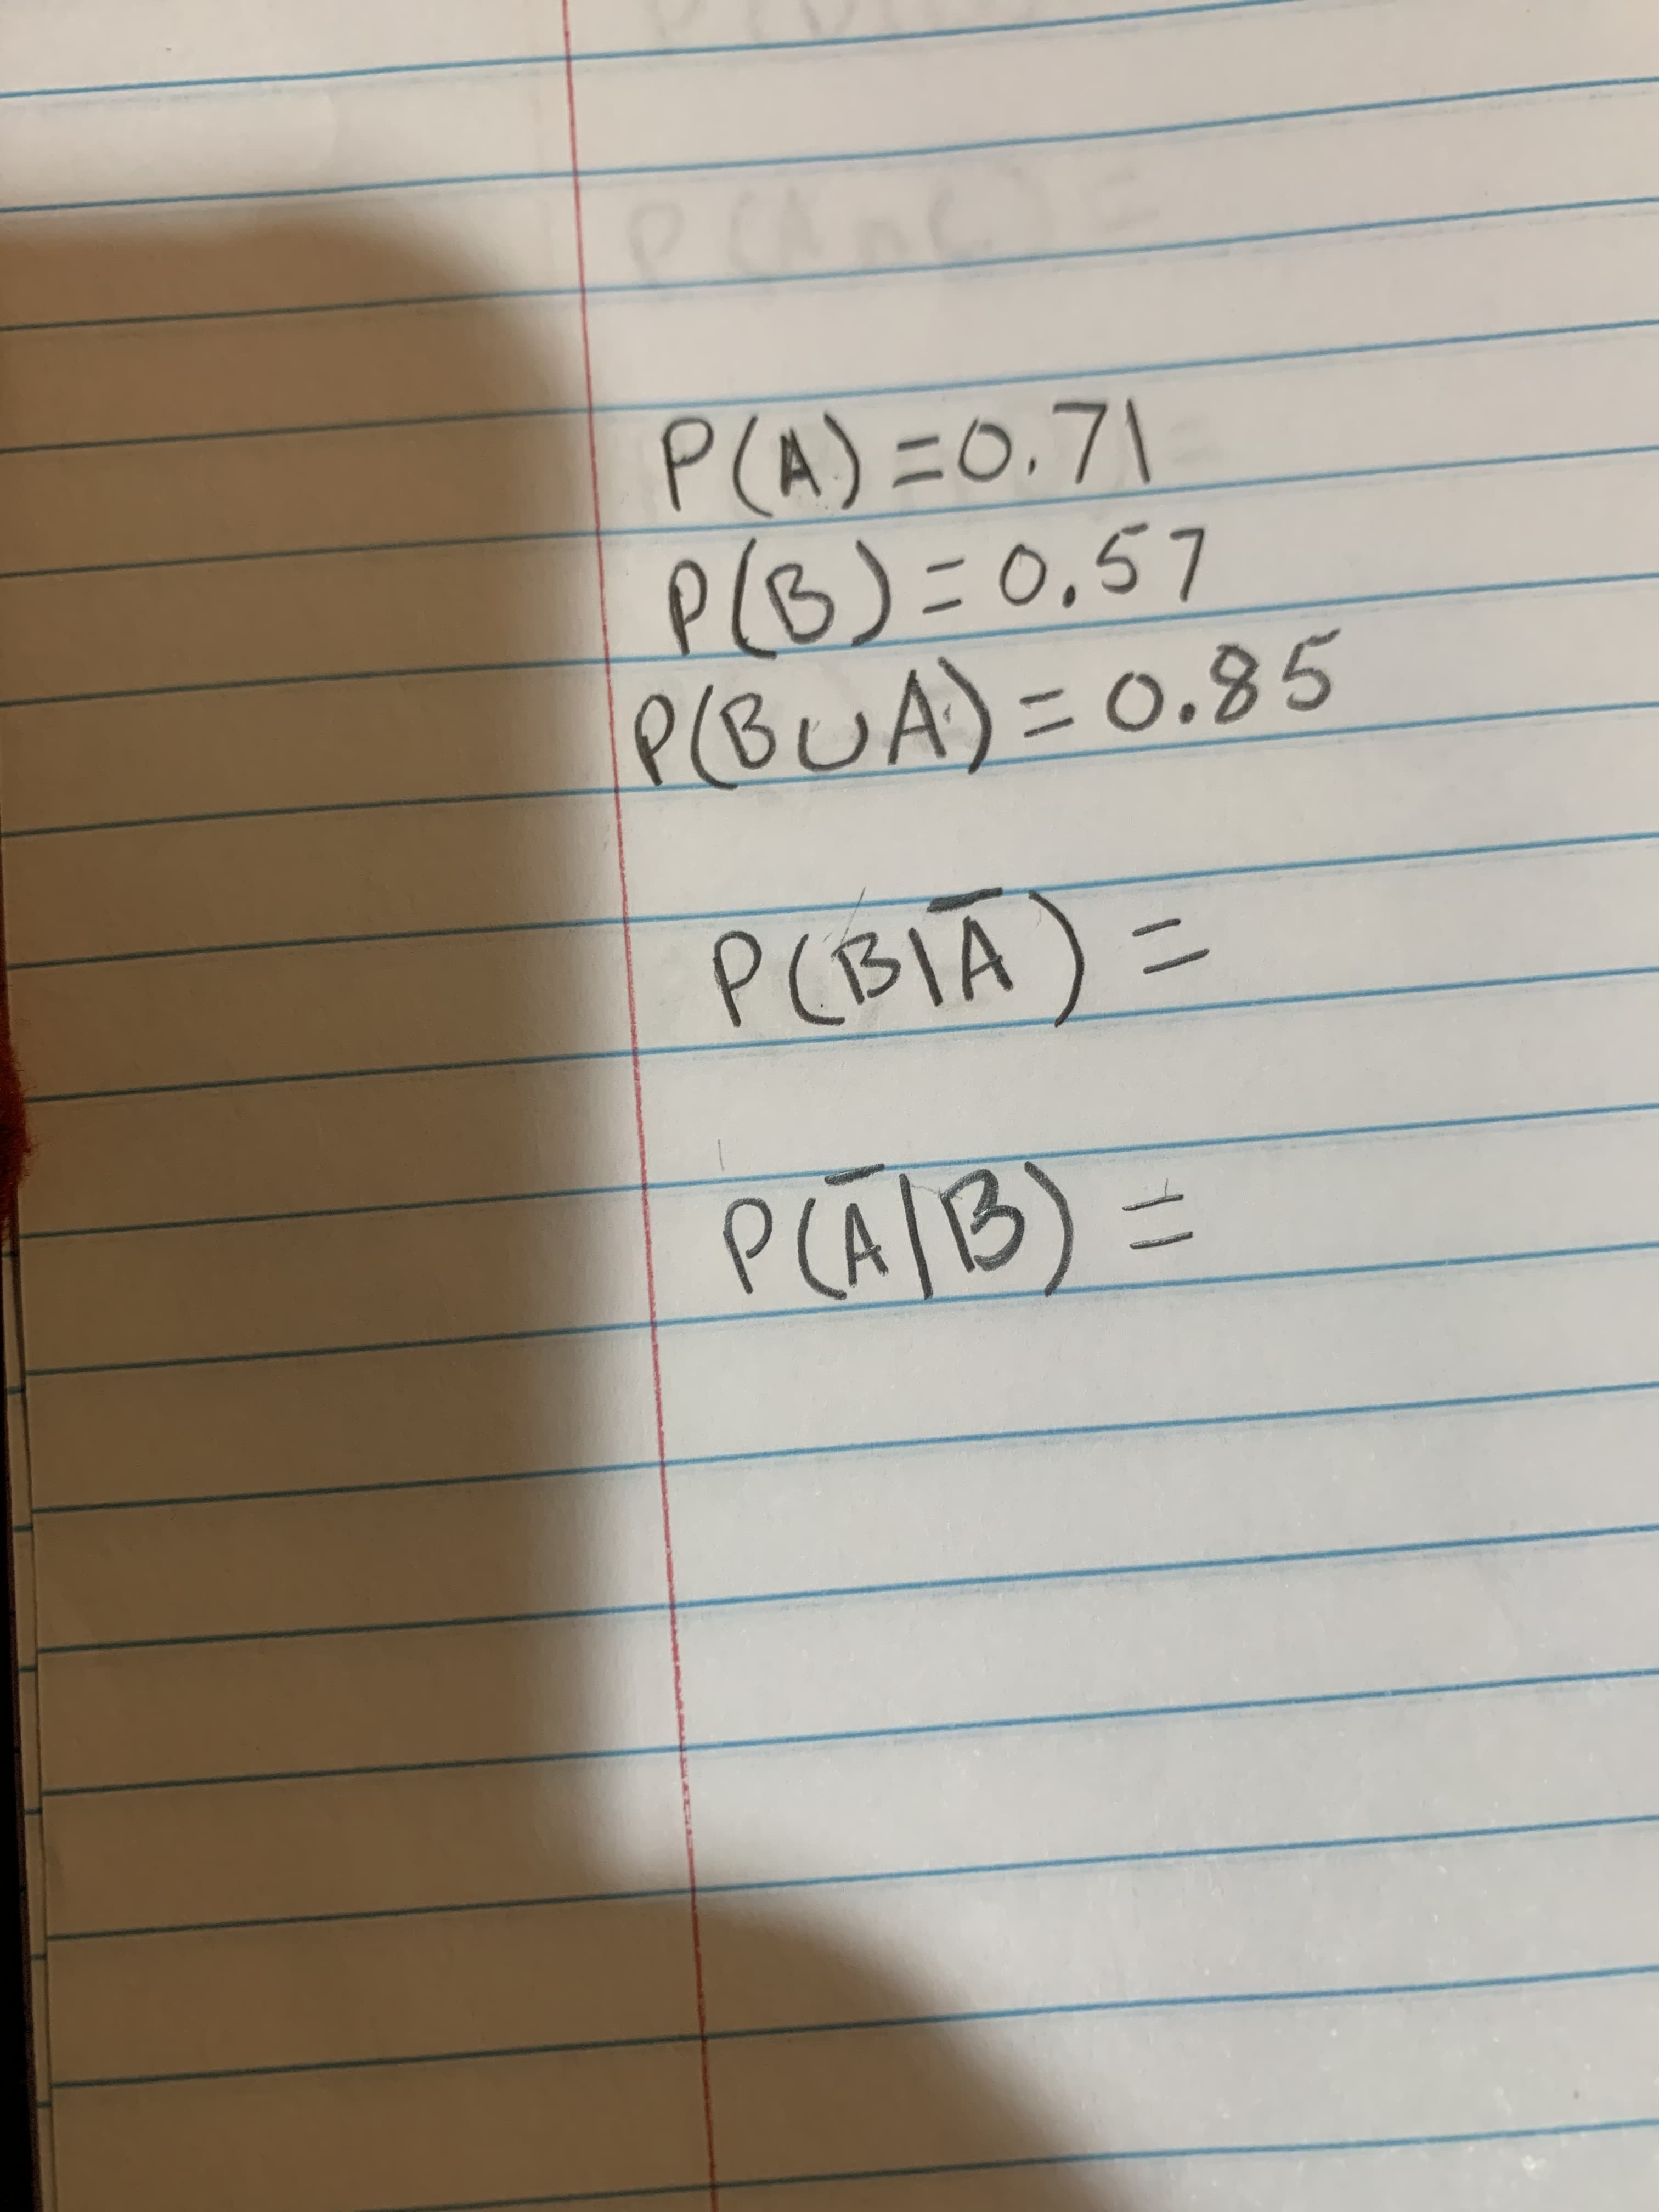 P(A∩C) =
P(A) = 0.71
P(B) = 0.57
P(B∪A) = 0.85
P(B|A̅) =
P(A̅|B) =